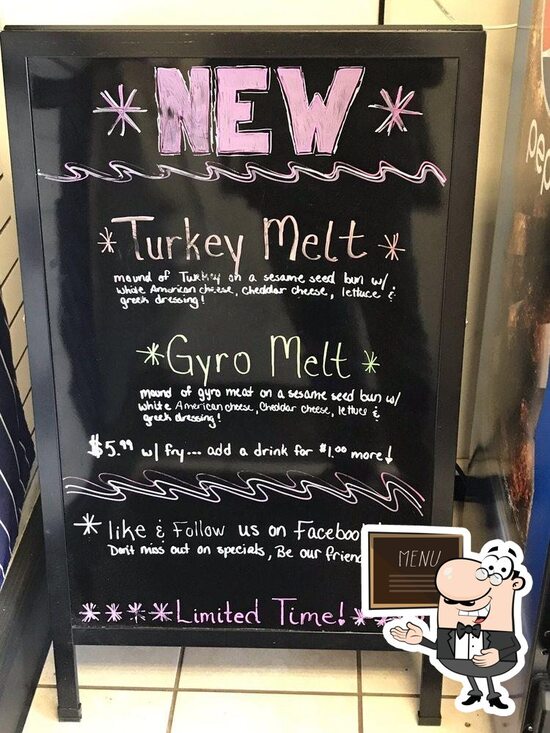 * NEW *
* Turkey Melt *
mound of Turkey on a sesame seed bun w/
white American cheese, Cheddar cheese, lettuce &
greek dressing!
* Gyro Melt *
mound of gyro meat on a sesame seed bun w/
white American cheese, Cheddar cheese, lettuce &
greek dressing!
$5.99 w/ fry... add a drink for $1.00 more!
* like & Follow us on Facebook
Don't miss out on specials, Be our friend
MENU
****Limited Time!**
pep